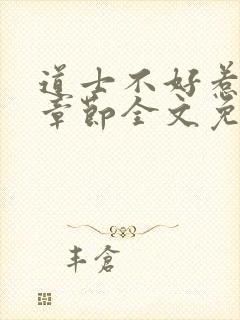 道士不好惹
章节全文免
丰仓